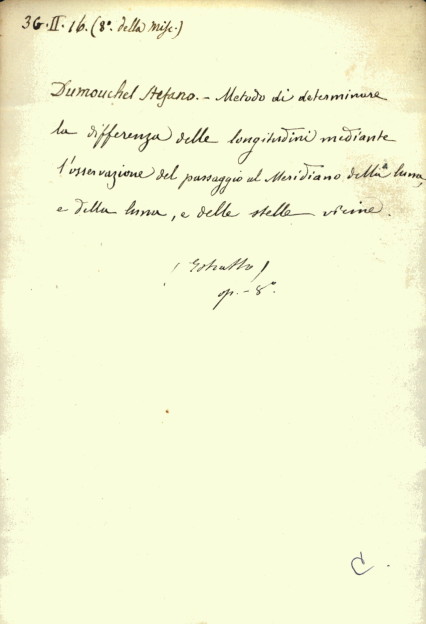 36.II.16. (8°. della Misc.)
Dumouchel Stefano. - Metodo di determinare
la differenza delle longitudini mediante
l'osservazione del passaggio al Meridiano della luna,
e della luna, e delle stelle vicine.
(Estratto)
op. - 8°.
C.